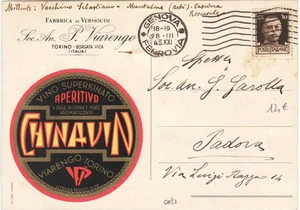 Mittente: Vecchino Sebastiano - Montalma (Asti) - Cascina
FABBRICA DI VERMOUTH
Soc. An. P. Viarengo
TORINO - BORGATA VICA
(ITALIA)
GENOVA
18-19
FERROVIA
POSTE ITALIANE
Spett.
Soc. An. G. Garolla
12,€
Padova
Via Luigi
VINO SUPERKINATO
APERITIVO
A BASE DI CHINA E VINO
AROMATIZZATO
CHINAVIN
VIARENGO-TORINO